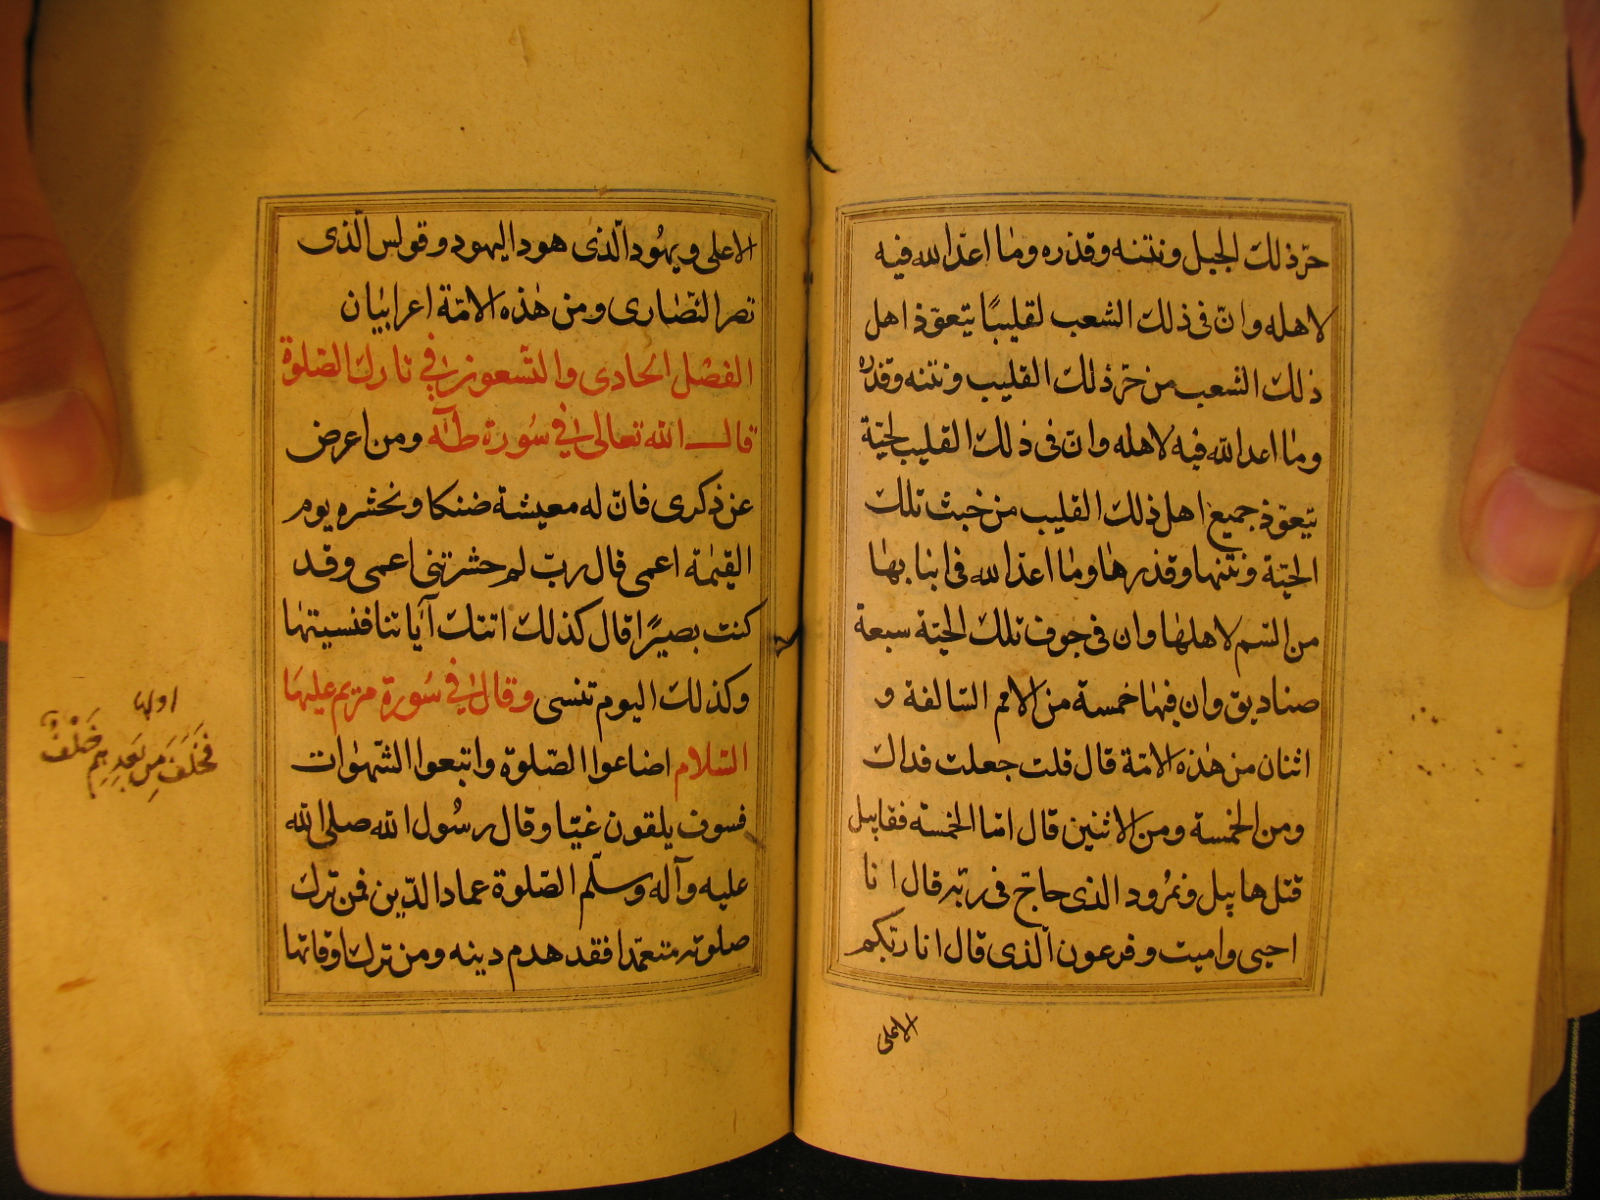 حرّ ذلك الجبل ونتنه وقذره وما اعدّ الله فيه
لاهله وانّ فى ذلك الشعب لقليبًا يتعوّذ اهل
ذلك الشعب من حرّ ذلك القليب ونتنه وقذره
وما اعد الله فيه لاهله وانّ فى ذلك القليب لحيّة
يتعوّذ جميع اهل ذلك القليب من خبث تلك
الحيّة ونتنها وقذرها وما اعدّ الله فى انيابها
من السّم لاهلها وان فى جوف تلك الحيّة سبعة
صناديق وان فيها خمسة من الامم السّالفة و
اثنان من هذه الامّة قال قلت جعلت فداك
ومن الخمسة ومن الاثنين قال امّا الخمسة فقابيل
قتل هابيل ونمرُود الذى حاجّ فى ربّه قال انا
احيى واميت وفرعون الّذى قال انا ربّكم
الاعلى
الاعلى ويهُود الّذى هود اليهود وقولس الّذى
نصر النّصارى ومن هٰذه الامّة اعرابيان
الفصْل الحادى والتّسعون فى تارك الصّلوة
قال الله تعالى فى سُورة طٓه ومن اعرض
عن ذكرى فانّ له معيشة ضنكا ونحشره يوم
القيٰمة اعمى قال ربّ لم حشرتنى اعمى وقد
كنت بصيرًا قال كذلك اتتك آياتنا فنسيتها
وكذلك اليوم تنسى وقال فى سُورة مريم عليها
السّلام اضاعوا الصّلوة واتبعوا الشّهوات
فسوف يلقون غيّا وقال رسُول الله صلى الله
عليه وآله وسلّم الصّلوة عماد الدّين فمن ترك
صلوته متعمّدا فقد هدم دينه ومن ترك اوقاتها
اولها
فَخَلَفَ مِن بَعدِهِم خَلفٌ